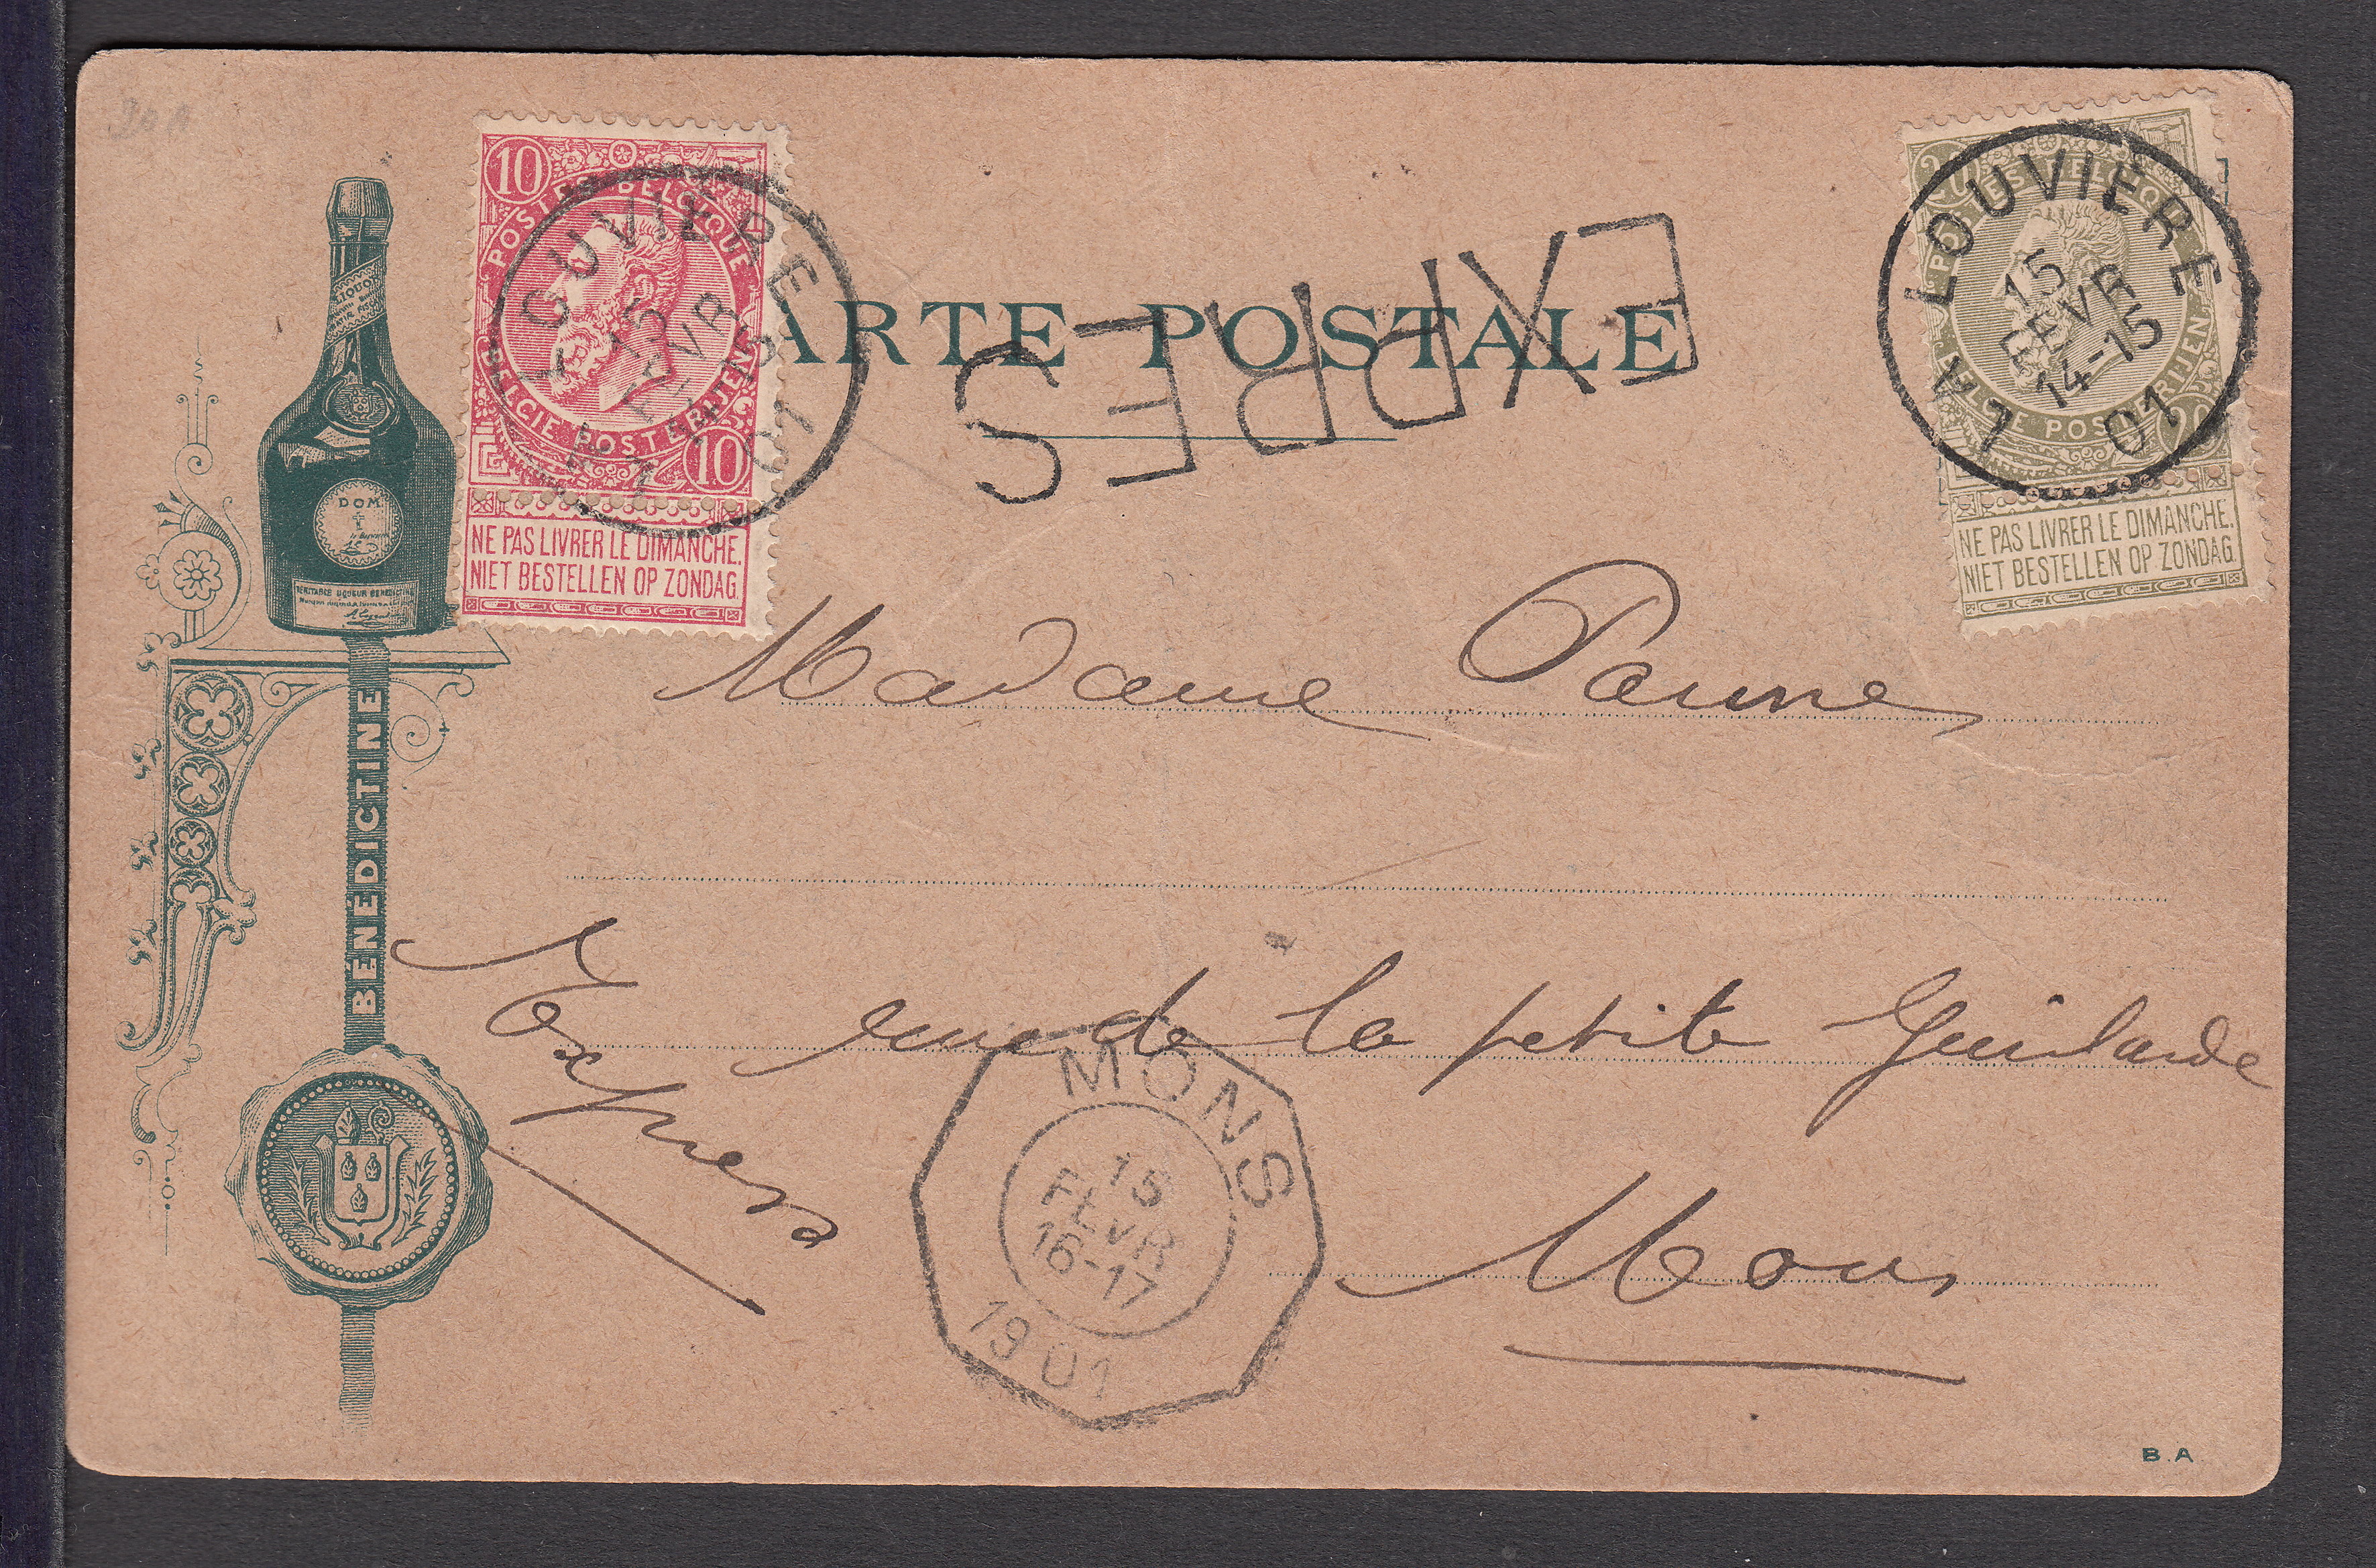 10
POSTES BELGIQUE
BELGIE POSTERIJEN
10
NE PAS LIVRER LE DIMANCHE.
NIET BESTELLEN OP ZONDAG.
OUVIERE
15
FEVR
01
CARTE POSTALE
EXPRES
20
POSTES BELGIQUE
BELGIE POSTERIJEN
20
NE PAS LIVRER LE DIMANCHE.
NIET BESTELLEN OP ZONDAG.
LA LOUVIERE
15
FEVR
14-15
01
DOM
VERITABLE LIQUEUR BENEDICTINE
BÉNÉDICTINE
Madame Panne
rue de la petite Guirlande
Expres
Mons
MONS
15
FEVR
16-17
1901
B.A